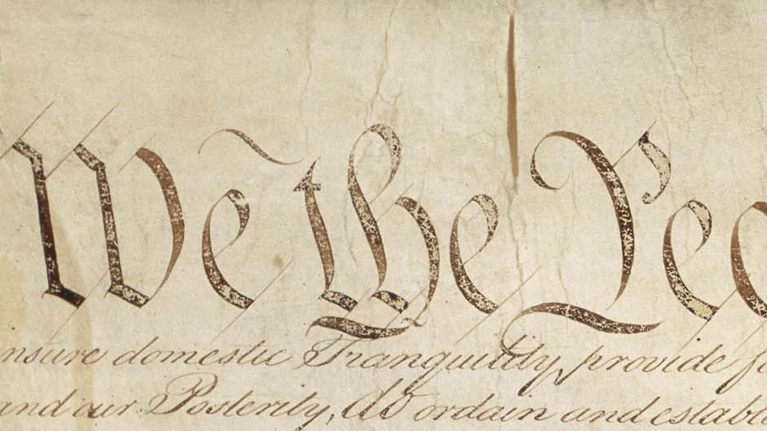 We the Peo
nsure domestic Tranquility, provide fo
and our Posterity, do ordain and establi